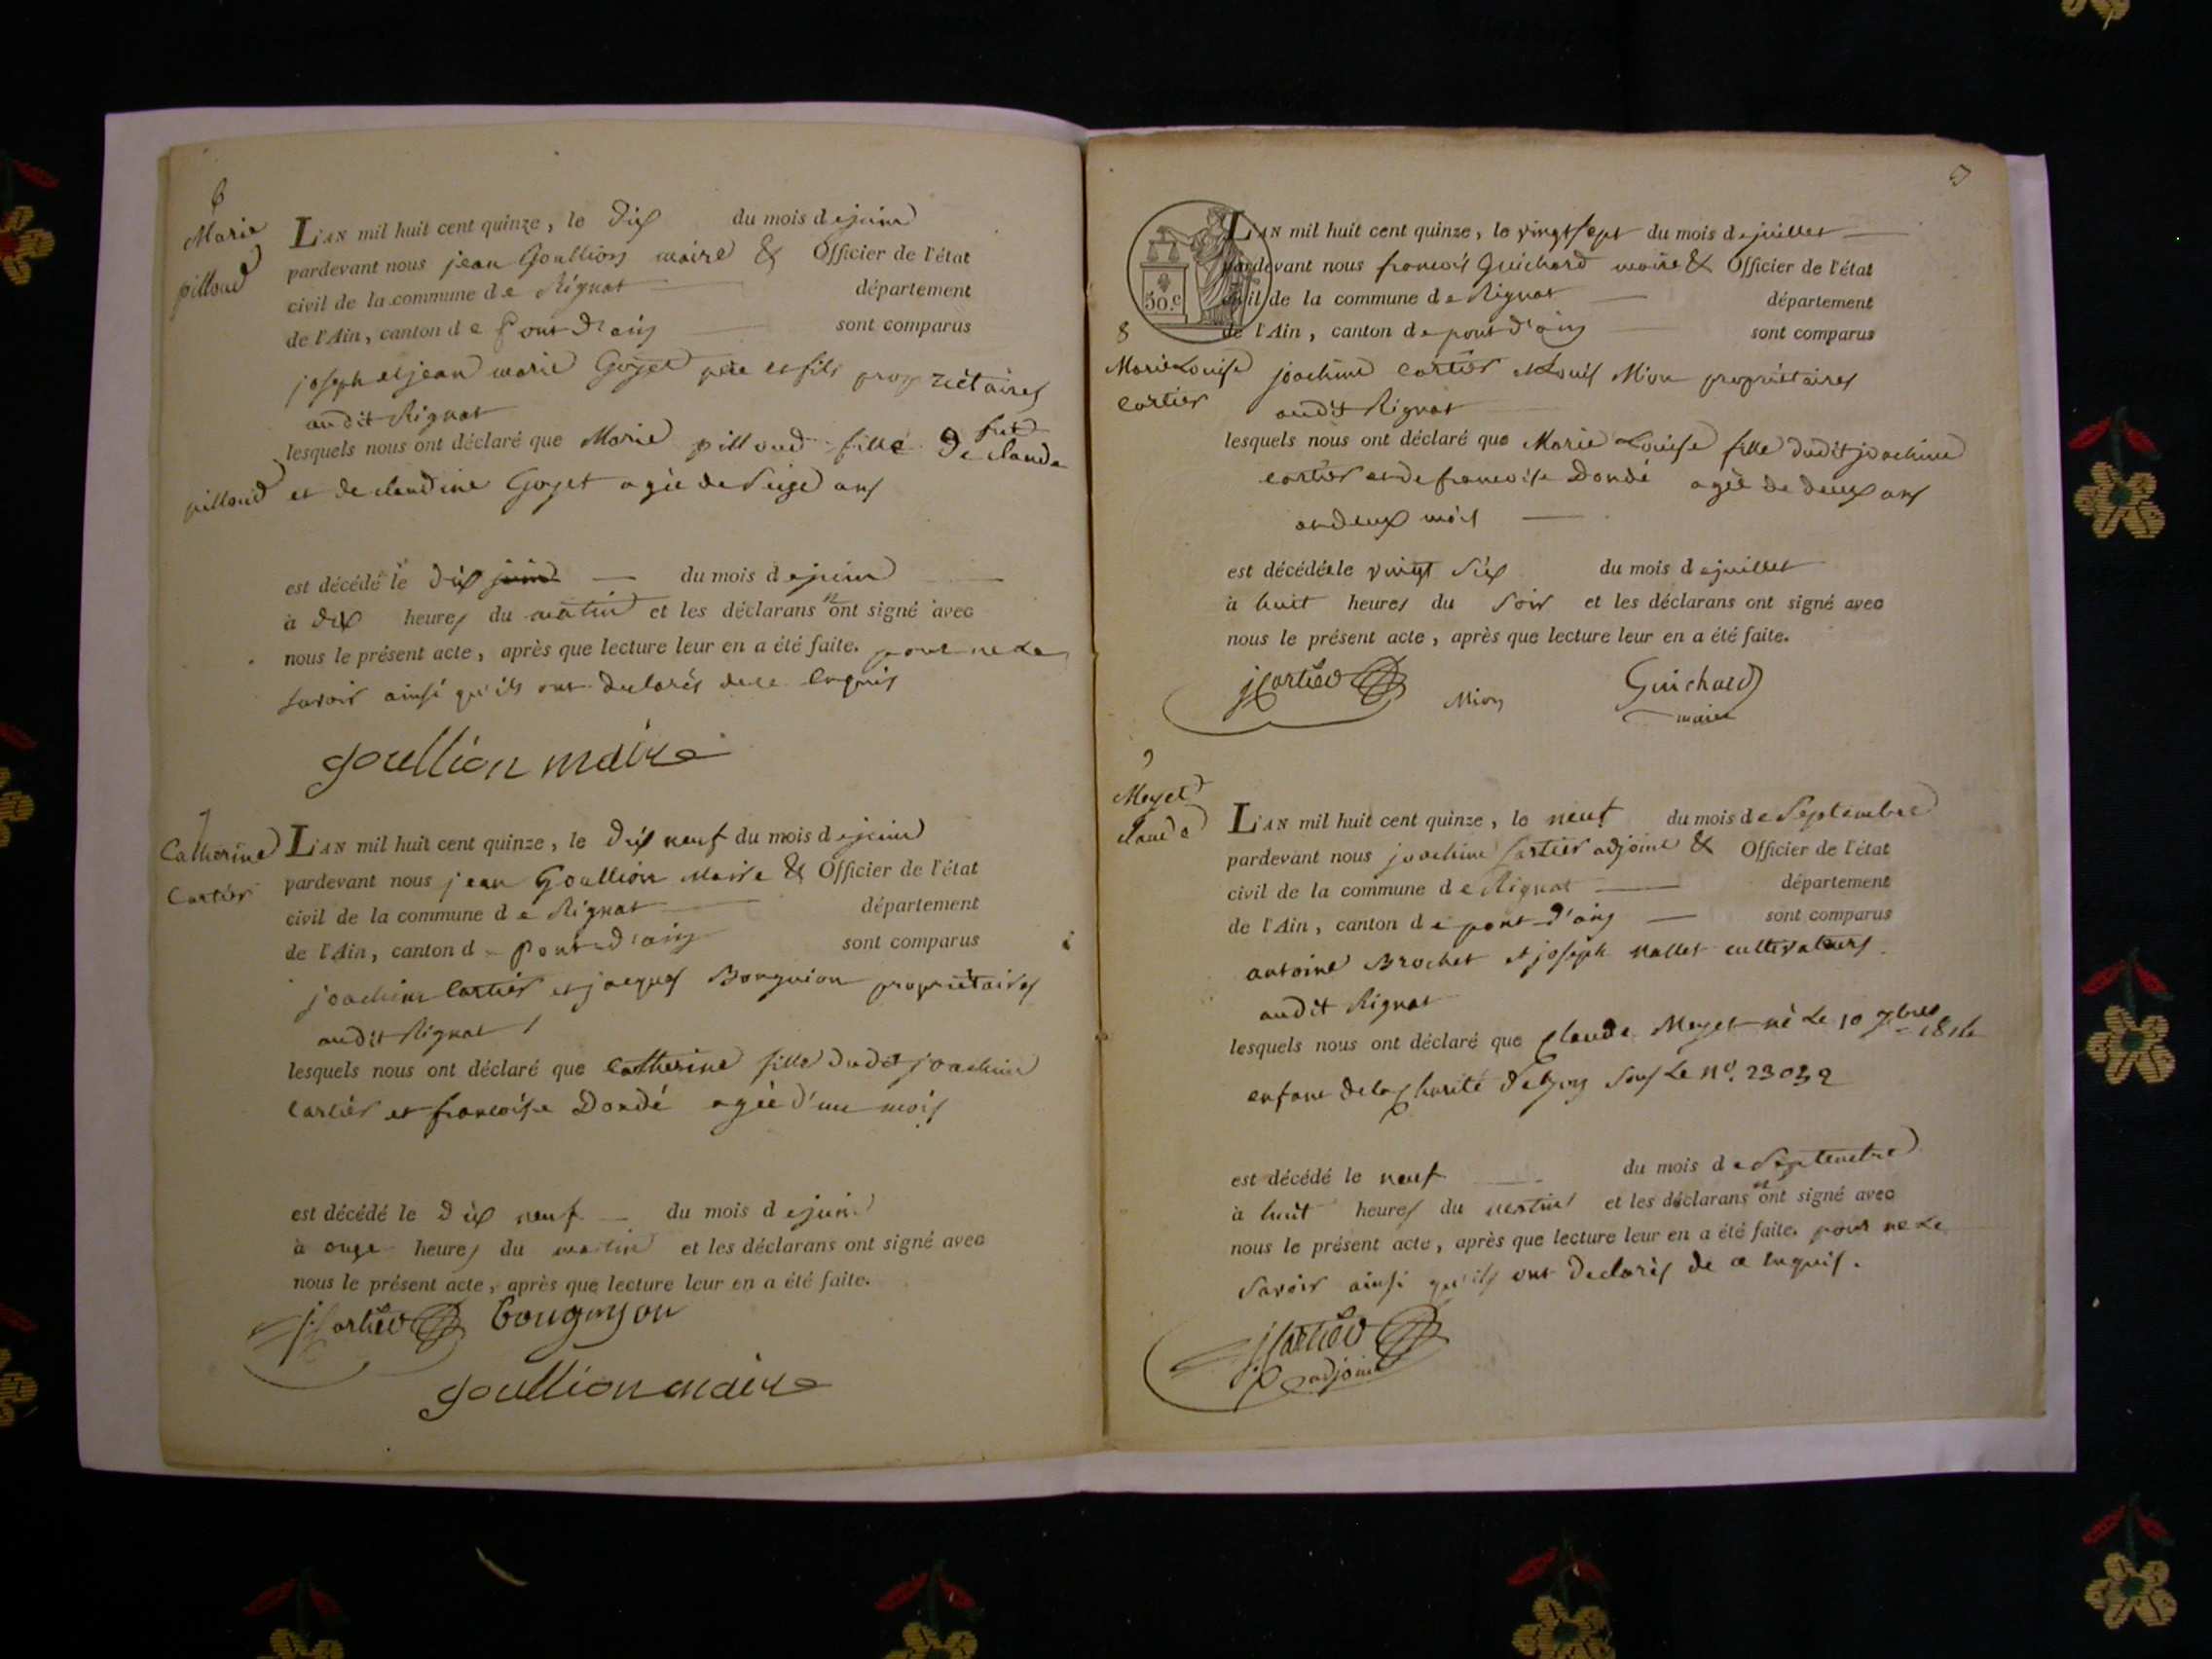 6
Marie
pilloud
L'AN mil huit cent quinze, le dix du mois de juin
pardevant nous jean Goullion maire & Officier de l'état
civil de la commune de Rignat département
de l'Ain, canton de Pont d'ain sont comparus
joseph et jean marie Goyet père et fils propriétaires
audit Rignat
lesquels nous ont déclaré que Marie pilloud fille de claude
pilloud et de claudine Goyet agée de Seize ans
est décédé le dix du mois de juin
à dix heures du matin et les déclarans n'ont signé avec
nous le présent acte, après que lecture leur en a été faite. pour ne le
savoir ainsi qu'ils ont declarés de ce Enquis
goullion maire
7
Catherine
Cartier
L'AN mil huit cent quinze, le dix neuf du mois de juin
pardevant nous jean Goullion Maire & Officier de l'état
civil de la commune de Rignat département
de l'Ain, canton de Pont d'ain sont comparus
joachim Cartier et jacques Bonguion propriétaires
audit Rignat
lesquels nous ont déclaré que Catherine fille dudit joachim
Cartier et francoise Dondé agée d'un mois
est décédé le dix neuf du mois de juin
à onze heures du matin et les déclarans ont signé avec
nous le présent acte, après que lecture leur en a été faite.
j Cartier
goullion maire
50.c
8
Marie Louise
Cartier
L'AN mil huit cent quinze, le vingt sept du mois de juillet
pardevant nous francois Guichard maire & Officier de l'état
civil de la commune de Rignat département
de l'Ain, canton de pont d'ain sont comparus
joachim Cartier et Louis Mion propriétaires
audit Rignat
lesquels nous ont déclaré que Marie Louise fille dudit joachim
Cartier et de francoise Dondé agée de deux ans
et deux mois
est décédée le vingt six du mois de juillet
à huit heures du soir et les déclarans ont signé avec
nous le présent acte, après que lecture leur en a été faite.
j Cartier Mion Guichard
maire
9
Meyet
claude
L'AN mil huit cent quinze, le neuf du mois de Septembre
pardevant nous joachim Cartier adjoint & Officier de l'état
civil de la commune de Rignat département
de l'Ain, canton de pont d'ain sont comparus
antoine Brochet et joseph Nallet cultivateurs
audit Rignat
lesquels nous ont déclaré que Claude Meyet né le 10 7bre 1814
enfant de la Charité de Lyon sous Le N°. 23032
est décédé le neuf du mois de Septembre
à huit heures du matin et les déclarans n'ont signé avec
nous le présent acte, après que lecture leur en a été faite. pour ne le
savoir ainsi qu'ils ont declarés de ce Enquis.
j Cartier
adjoint